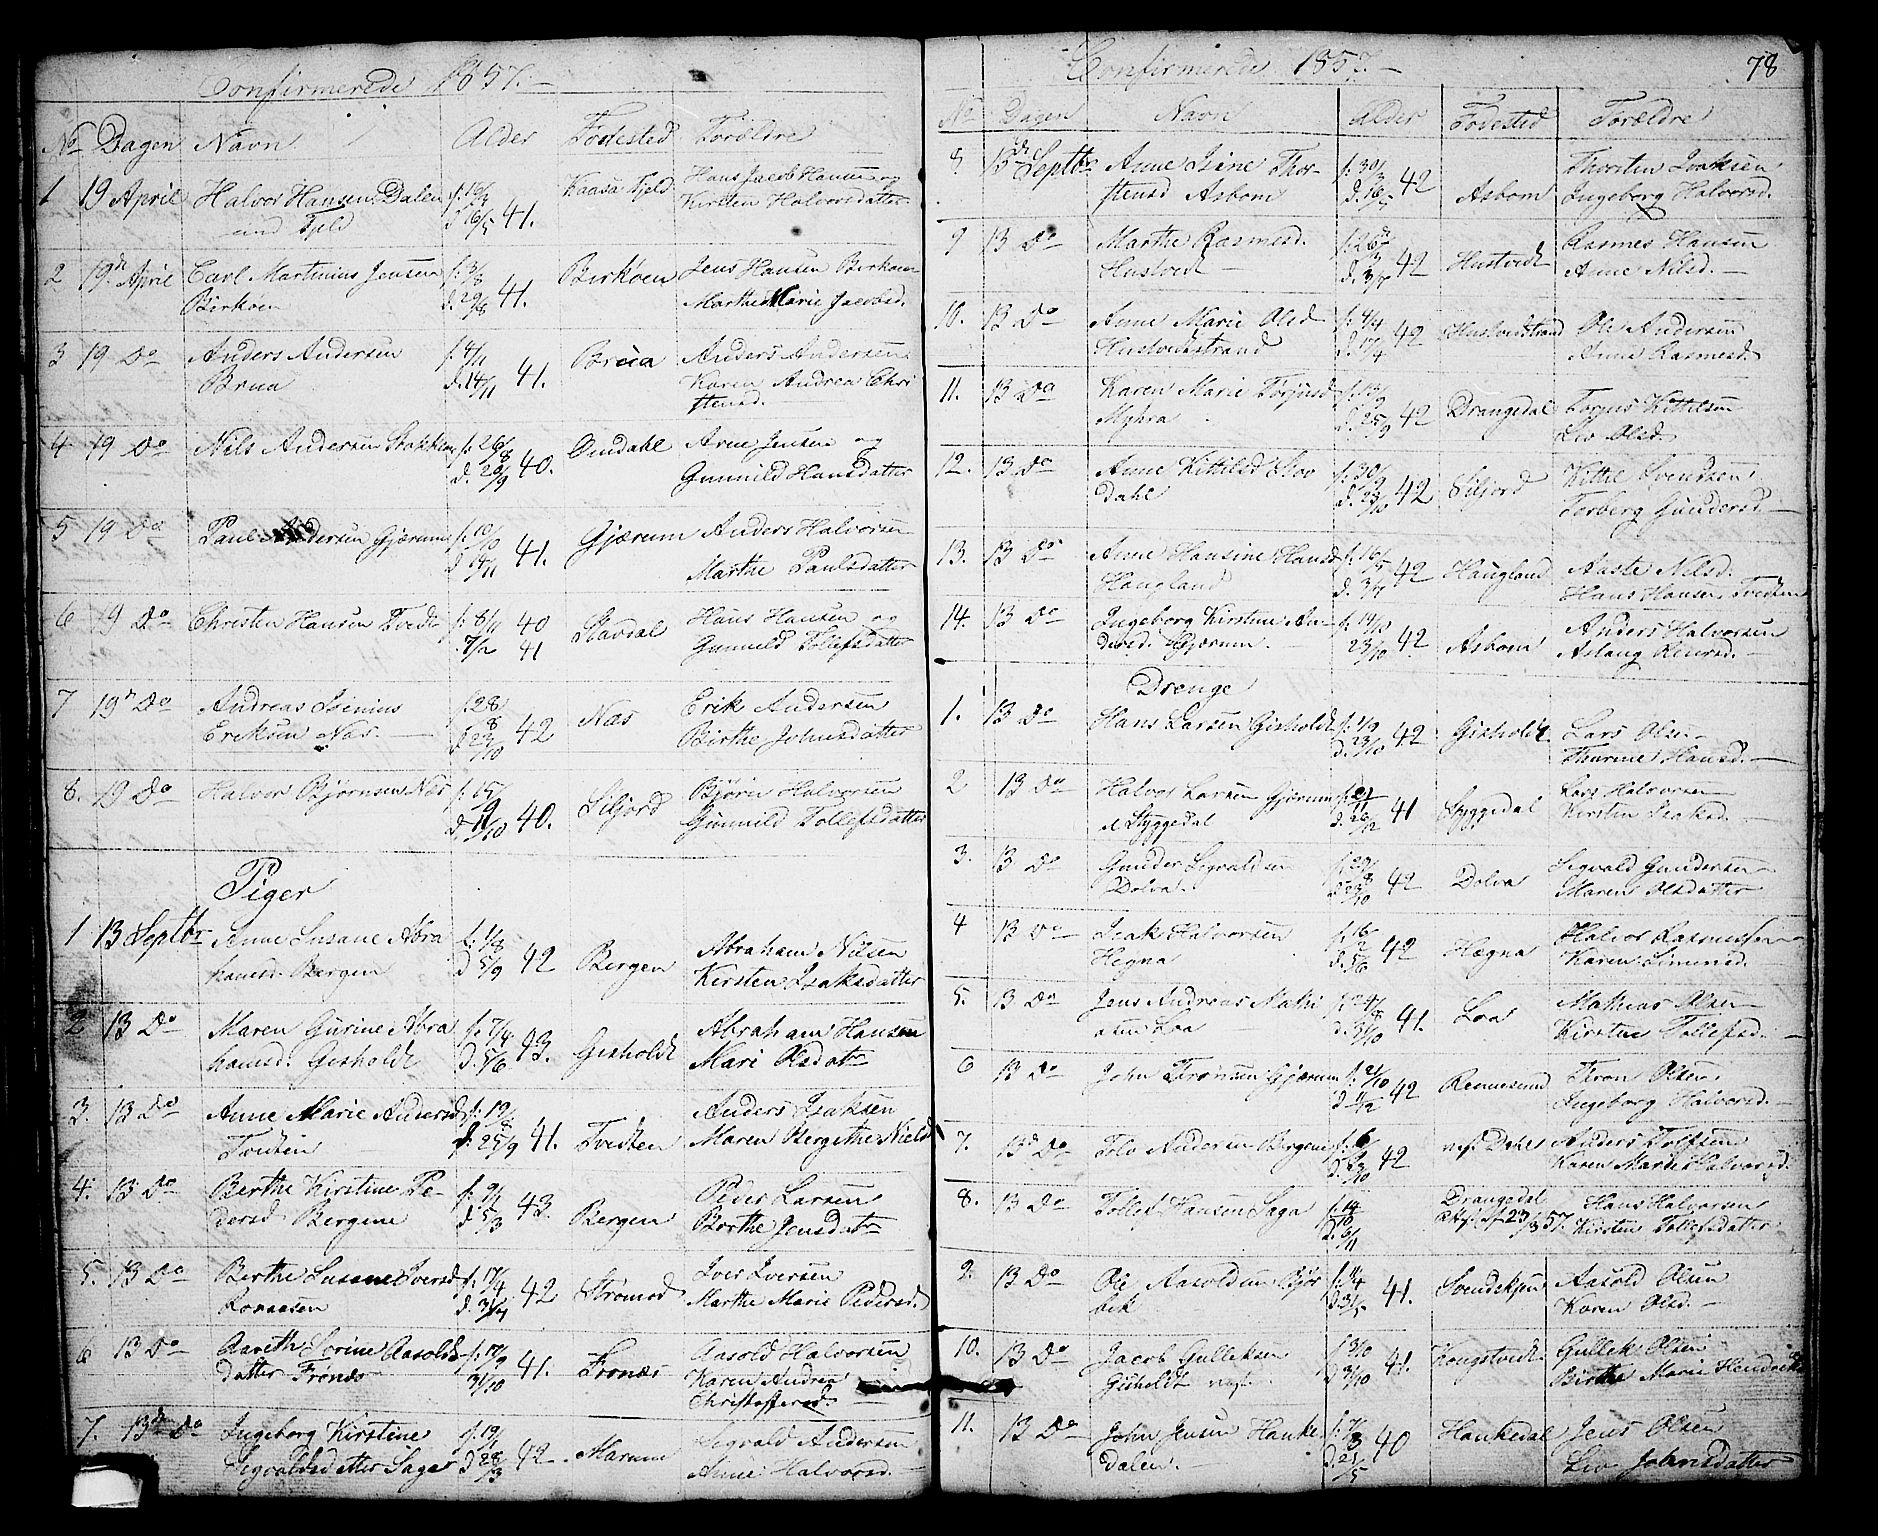 Confirmerede 1857.
No Dagen Navn Alder Fødested Forældre
1 19 April Halvor Hansen Dalen f. 10/4 41. Kaasa Fjeld Hans Jacob Hansen og
und Fjeld d. 16/5 Kirsten Halvorsdatter
2 19de April Carl Martinius Jensen f. 3/8 41. Birkøen Jens Hansen Birkøen
Birkøen d. 29/8 Marthe Marie Jacobsd.
3 19 Do Anders Andersen f. 4/11 41. Brua Anders Andersen
Brua d. 14/11 Karen Andrea Chri
stensd.
4 19 Do Nils Andersen Stokken f. 26/8 40. Omdahl Arne Jensen og
d. 20/9 Gunnild Hansdatter
5 19 Do Paul Andersen Gjærum f. 10/10 41. Gjærum Anders Halvorsen
d. 14/11 Marthe Paulsdatter
6 19 Do Christen Hansen Tvedt f. 8/11 40 Stavdal Hans Hansen og
7/2 41 Gunnild Tollefsdatter
7 19de Do Andreas Isinius f. 28/8 42 Næs Erik Andersen
Eriksen Næs. d. 23/10 Birthe Johnsdatter
8. 19 Do Halvor Bjørnsen Næs f. 15/9 40. Siljord Bjørn Halvorsen
d. 11/10 Gunnild Tollefsdatter
Piger
1 13 Septbr Anne Susane Abra f. 1/8 42 Bergen Abraham Nilsen
hamsd. Bergen d. 5/9 Kirsten Isaksdatter
2 13 Do Maren Gurine Abra f. 7/4 43. Gisholdt Abraham Hansen
hamsd. Gisholdt d. 5/6 Mari Olsdatr
3. 13 Do Anne Marie Andersd f. 19/8 41. Tvedten Anders Isaksen
Tvedten d. 25/9 Maren Bergithe Nielsd
4. 13 Do Berthe Kirstine Pe- f. 9/1 43 Bergen Peder Larsen
dersd Bergene d. 5/3 Berthe Jensdatr
5. 13 Do Berthe Susane Iversd f. 17/4 42 Strømod Iver Iversen
Ronaasen d. 31/7 Marthe Marie Pedersd.
6 13 Do Aareth Sorine Aasolds- f. 17/9 41. Frønæs Aasold Halvorsen
datter Frønæs 31/10 Karen Andrea
Christoffersd.
7. 13de Do Ingeborg Kirstine f. 19/1 42 Marum Sigvald Andersen
Sigvaldsdatter Saga d. 28/3 Anne Halvorsd.
Confirmerede 1857. 78
No Dagen Navn Alder Fødested Forældre
8 13de Septbr Anne Isine Thor- f. 30/3 42 Asbom Thorsten Isaksen
stensd Asbom d. 16/5 Ingeborg Halvorsd.
9 13 Do Marthe Rasmesd. f. 26/3 42 Hustvedt Rasmes Hansen
Hustvedt d. 3/7 Anne Nilsd.
10. 13 Do Anne Marie Olsd f. 4/4 42 Hustvedtstrand Ole Andersen
Hustvedtstrand d. 17/4 Anne Rasmesd.
11. 13 Do Karen Marie Torjusd f. 13/9 42 Drangedal Torjus Kittilsen
Myhra d. 25/9 Liv Olsd.
12. 13 Do Anne Kittilsd Skov f. 30/9 42 Siljord Kittil Svendsen
dahl d. 23/10 Torberg Gundersd.
13. 13 Do Anne Hansine Hansd f. 16/5 42 Haugland Aaste Nilsd.
Haugland d. 3/7 Hans Hansen, Tvedten
14. 13 Do Ingeborg Kirstine An- f. 19/8 42. Asbom Anders Halvorsen
dersd. Gjærum 23/10 Aslaug Einersd.
Drenge
1. 13 Do Hans Larsen Gisholdt f. 1/9 42 Gisholdt Lars Olsen
d. 23/10 Thurine Hansd.
2 13 Do Halvor Larsen Gjærum f. 21/11 41 Styggedal Lars Halvorsen
Styggedal d. 26/12 Kirsten Isaksd.
3. 13 Do Gunder Sigvaldsen f. 29/8 42 Dolva Sigvald Gundersen
Dolva. d. 23/10 Maren Olsdatter
4 13 Do Isak Halvorsen f. 16/2 42 Hægna Halvor Rasmussen
Hegna d. 5/6 Karen Simensd.
5. 13 Do Jens Andreas Mathi f. 24/8 41. Loa Mathias Olsen
asen Loa d. 31/10 Kirstine Tollefsd.
6 13 Do John Tronsen Gjærum f. 21/10 42 Rennesund Tron Olsen
d. 11/12 Ingeborg Halvorsd.
7. 13de Do Tolv Andersen Bergene f. 6/9 42 vest Dahl Anders Tolfsen
d. 23/10 Karen Marthe Halvorsd.
8. 13 Do Tollef Hansen Saga f. 14/10 Drangedal Hans Halvorsen
d. 6/11 23/8 57. Kirsten Tollefsdatter
9. 13 Do Ole Aasoldsen Bjør f. 11/4 41. Svendskjen Aasold Olsen
bek d. 31/5 Karen Olsd.
10. 13 Do Jacob Gulleksen 13/10 41. Kongstvedt Gullek Olsen
Gisholdt d. 31/10 Birthe Marie Hendriksd
11. 13 Do John Jensen Hanke f. 7/3 40 Hankedal Jens Olsen
dalen. d. 21/5 Liv Johnsdatter